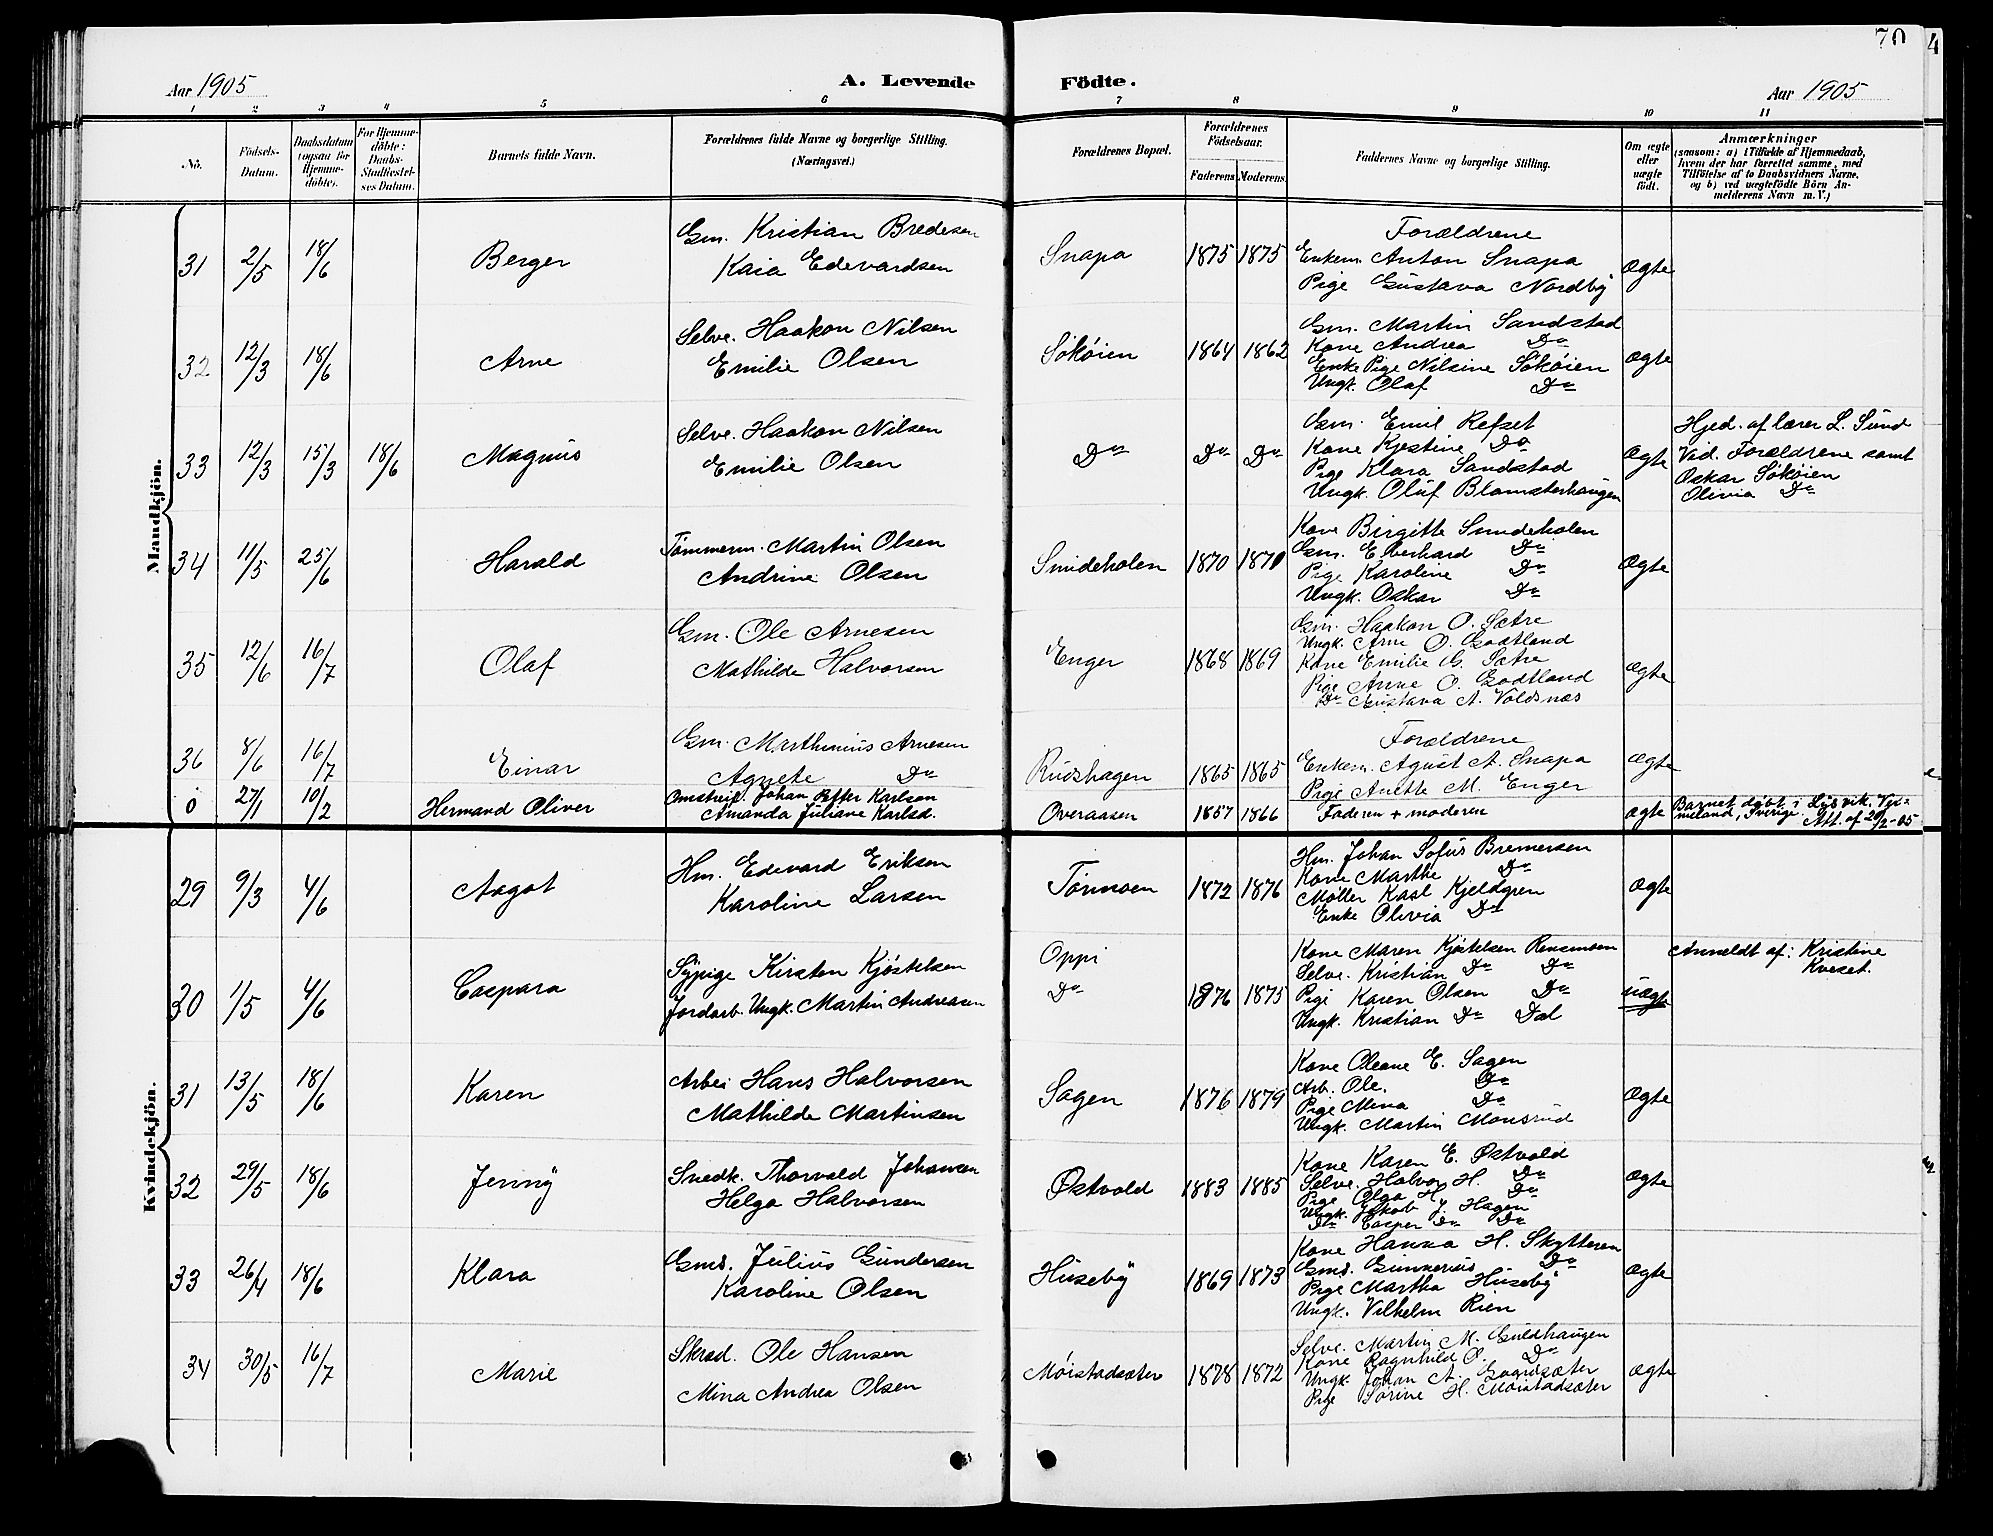 70
4
Aar 1905
A. Levende
Födte.
Aar 1905
1 2 3 4 5 6 7 8 9 10 11
No.
Födsels-Datum.
Daabsdatum (ogsaa for Hjemmedöbte).
For Hjemmedöbte: Daabs-Stadfæstelses Datum.
Barnets fulde Navn.
Forældrenes fulde Navne og borgerlige Stilling.
(Næringsvei.)
Forældrenes Bopæl.
Forældrenes Födselsaar.
Faderens Moderens
Faddernes Navne og borgerlige Stilling.
Om ægte eller uægte födt.
Anmærkninger
(saasom: a) i Tilfælde af Hjemmedaab,
hvem der har forrettet samme, med
Tilföielse af to Daabsvidners Navne,
og b) ved uægtefödte Börn An-
melderens Navn m. V.)
Mandkjön.
31 2/5 18/6 Berger
Gm. Kristian Bredesen
Kaia Edevardsen
Snapa 1875 1875
Forældrene
Enkem. Anton Snapa
Pige Gustava Nordby
Ægte
32 12/3 18/6 Arne
Selve. Haakon Nilsen
Emilie Olsen
Søkøien 1864 1862
Gm. Martin Sandstad
Kone Andrea Do
Enke Pige Nilsine Søkøien
Ungk. Olaf Do
Ægte
33 12/3 15/3 18/6 Magnus
Selve. Haakon Nilsen
Emilie Olsen
Do Do Do
Gm. Emil Refset
Kone Kjestine Do
Pige Klara Sandstad
Ungk. Oluf Blomsterhaugen
Ægte
Hjed. af lærer L. Sund
Vid. Forældrene samt
Oskar Søkøien
Olivia Do
34 11/5 25/6 Harald
Tømmerm. Martin Olsen
Andrine Olsen
Smideholen 1870 1870
Kone Birgitte Smideholen
Gm. Eberhard Do
Pige Karoline Do
Ungk. Oskar Do
Ægte
35 12/6 16/7 Olaf
Gm. Ole Arnesen
Mathilde Halvorsen
Enger 1868 1869
Gm. Haakon O. Sætre
Ungk. Arne O. Godtland
Kone Emilie G. Sætre
Pige Anne O. Godtland
Do Gustava A. Voldsnæs
Ægte
36 8/6 16/7 Einar
Gm. Marthinius Arnesen
Agnete Do
Rudshagen 1865 1865
Forældrene
Enkem. Agust A. Snapa
Pige Anette M. Enger
Ægte
0 27/1 10/2 Hermand Oliver
Omstreif. Johan Petter Karlson
Amanda Juliane Karlsd.
Overaasen 1857 1866
Faderen + moderen
ægte
Barnet døbt i Lysvik, Ver-
meland, Sverige. Att. af 20/2-05
Kvindekjön.
29 9/3 4/6 Aagot
Hm. Edevard Eriksen
Karoline Larsen
Tønnoen 1872 1876
Hm. Johan Sofus Bremersen
Kone Marthe Do
Møller Karl Kjeldgren
Enke Olivia Do
Ægte
30 1/5 4/6 Caspara
Sypige Kirsten Kjøstelsen
Jordarb. Ungk. Martin Andreasen
Oppi
Do
1876 1875
Kone Maren Kjøstelsen Rensmoen
Selve. Kristian Do Do
Pige Karen Olsen Do
Ungk. Kristian Do Dal
uægte
Anmeldt af: Kristine
Kveset.
31 13/5 18/6 Karen
Arbei Hans Halvorsen
Mathilde Martinsen
Sagen 1876 1879
Kone Oleane E. Sagen
Arb. Ole. Do
Pige Mina Do
Ungk. Martin Monsrud
Ægte
32 29/5 18/6 Jenny
Snedk. Thorvald Johansen
Helga Halvorsen
Østvold 1883 1885
Kone Karen E. Østvold
Selve. Halvor H. Do
Pige Olga H. Do
Ungk. Jakob J. Hagen
Do Casper Do Do
Ægte
33 26/4 18/6 Klara
Gms. Julius Gundersen
Karoline Olsen
Huseby 1869 1873
Kone Hanna H. Skytteren
Gms. Gunnerius Do
Pige Martha Huseby
Ungk. Vilhelm Rien
Ægte
34 30/5 16/7 Marie
Skræd. Ole Hansen
Mina Andrea Olsen
Møistadsæter 1878 1872
Selve. Martin M. Guldhaugen
Kone Ragnhild O. Do
Ungk. Johan A.
Pige Sorine H. Møistadsæter
Ægte